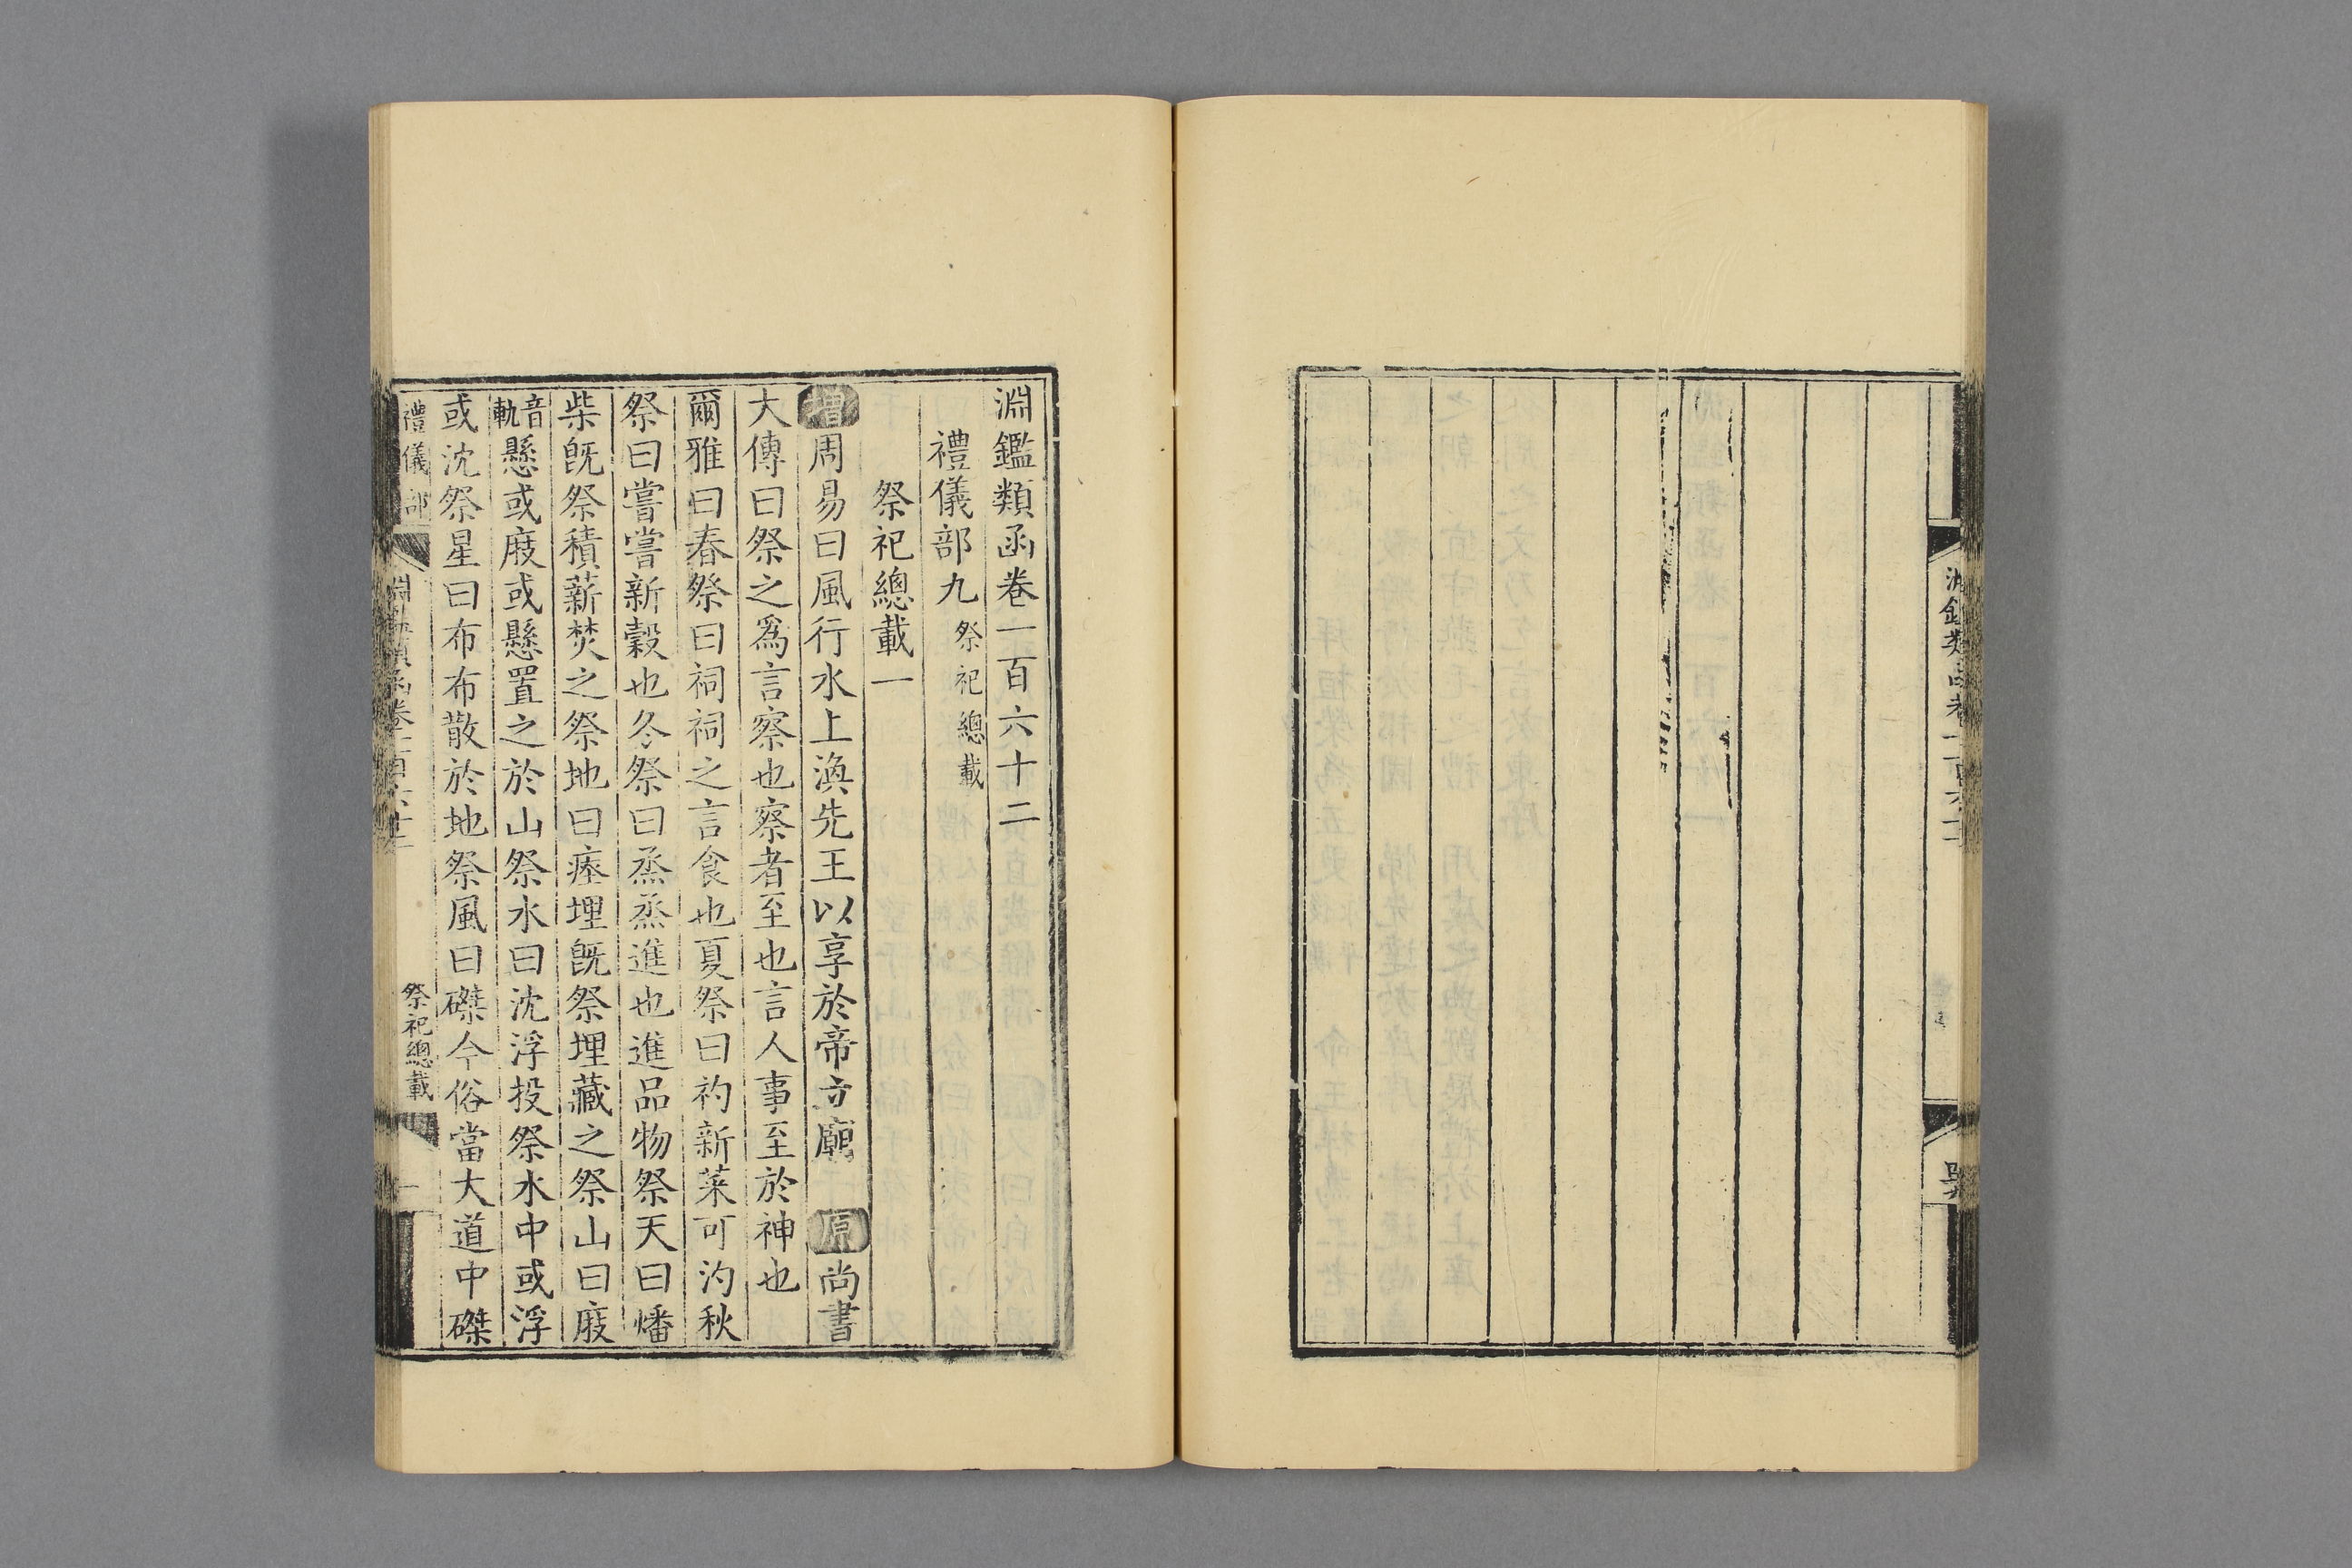 淵鑑類函卷一百六十二
禮儀部九 祭祀總載
祭祀總載一
增周易曰風行水上渙先王以享於帝立廟 原尚書
大傳曰祭之爲言察也察者至也言人事至於神也
爾雅曰春祭曰祠祠之言食也夏祭曰礿新菜可汋秋
祭曰嘗嘗新穀也冬祭曰烝烝進也進品物祭天曰燔
柴旣祭積薪焚之祭地曰瘞埋旣祭埋藏之祭山曰庪
音軌懸或庪或懸置之於山祭水曰沈浮投祭水中或浮
或沈祭星曰布布散於地祭風曰磔今俗當大道中磔
禮儀部 淵鑑類函卷一百六十二 祭祀總載 一